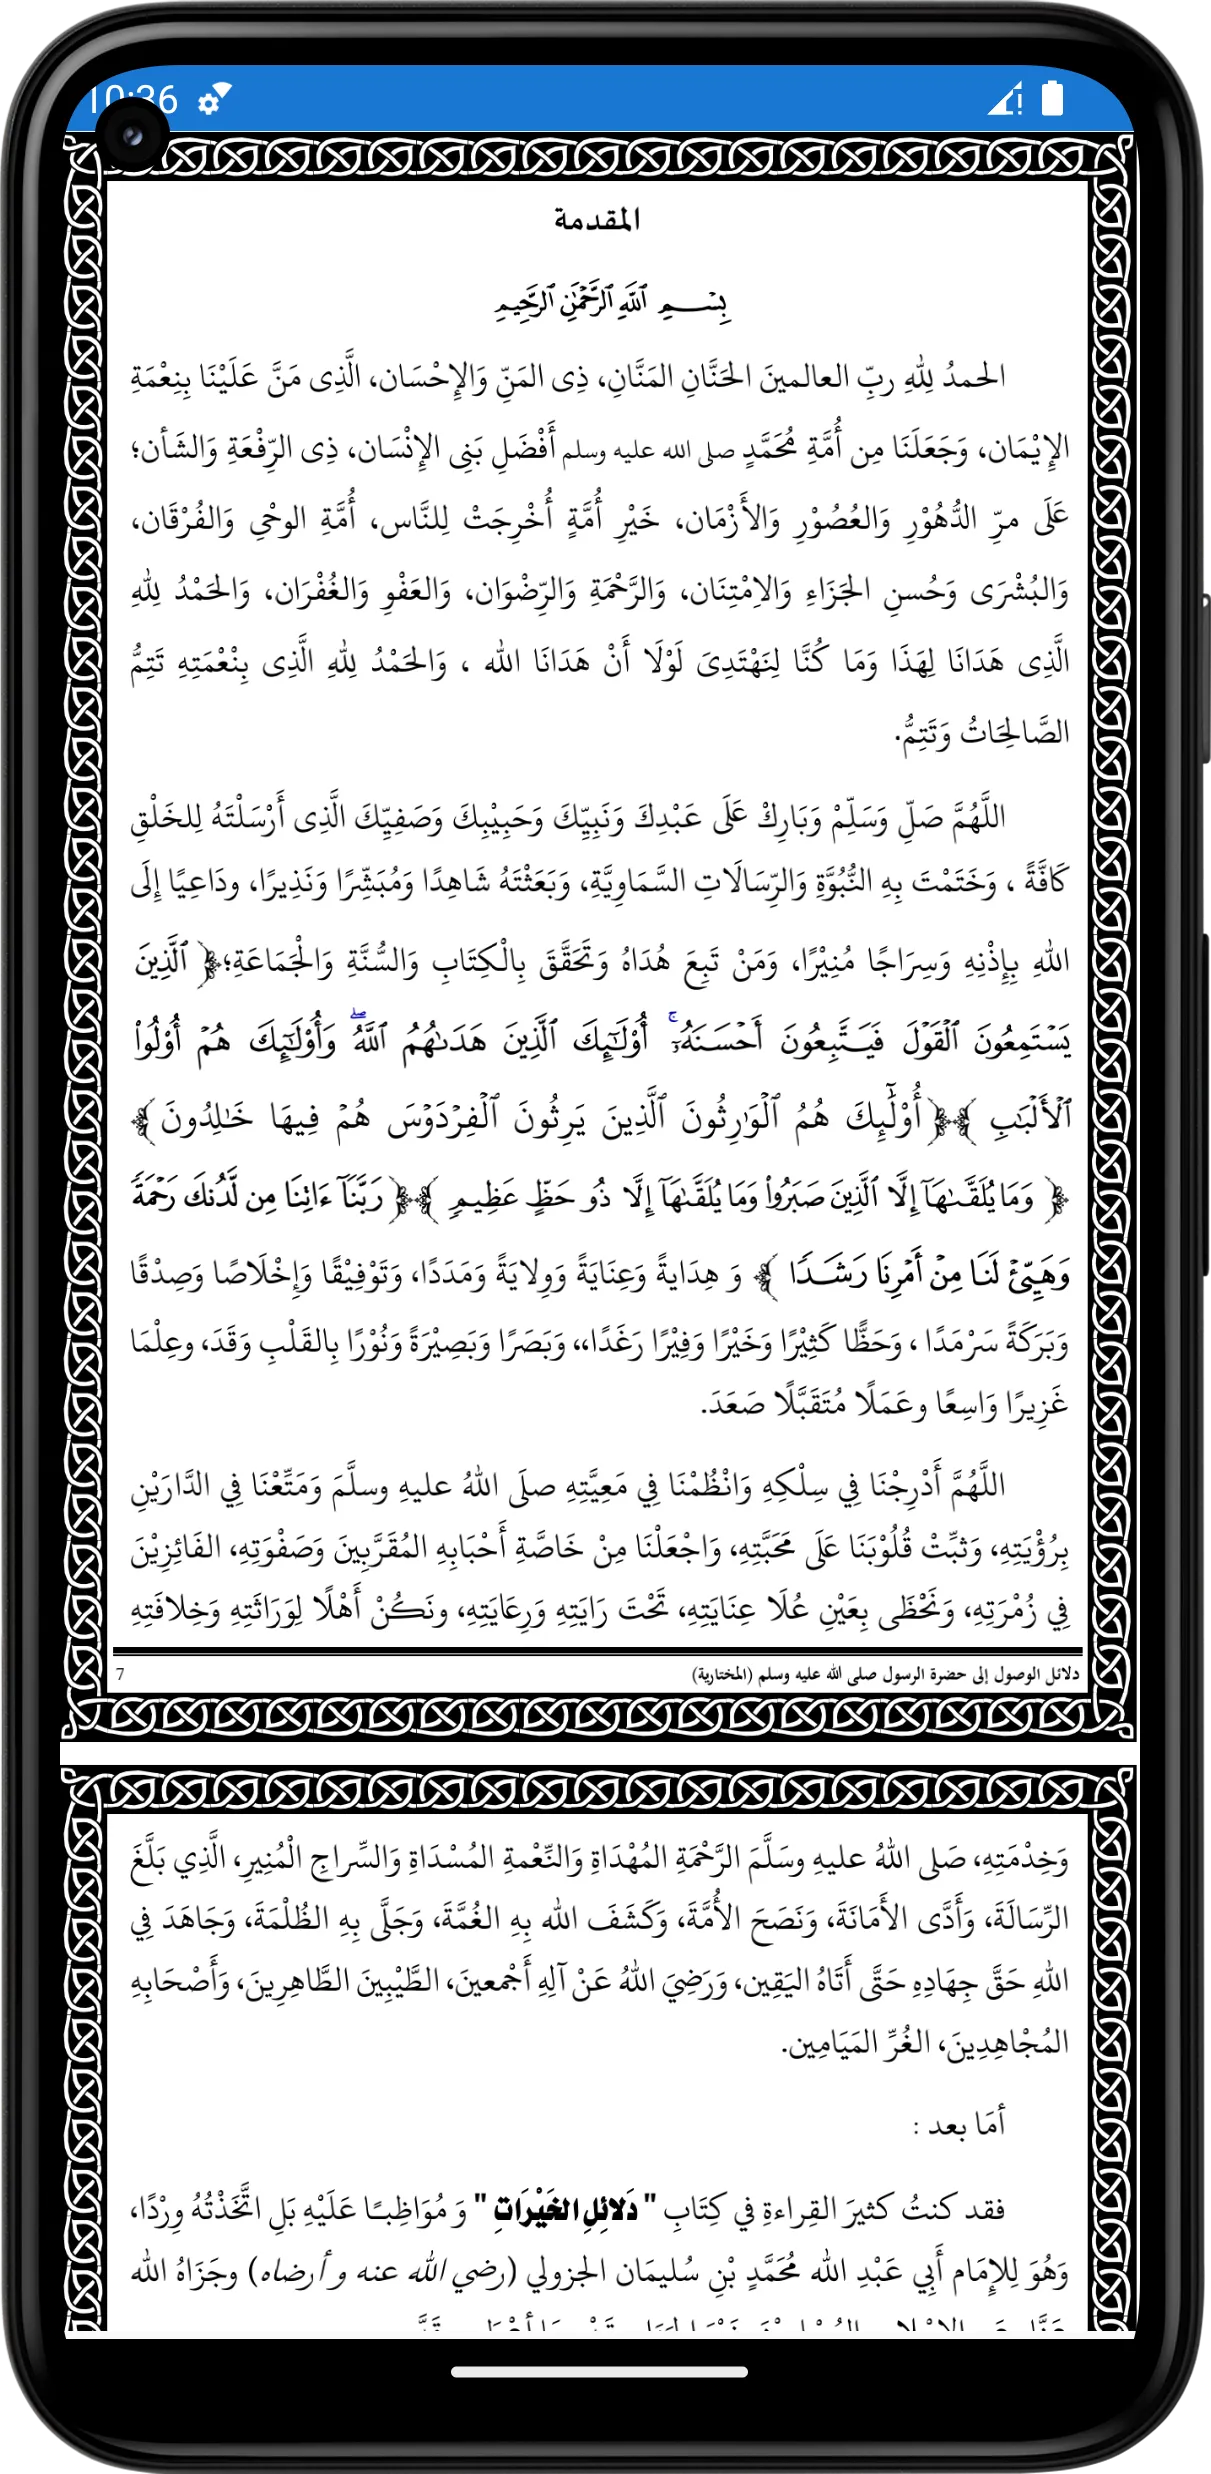 10:36
المقدمة
بِسْمِ ٱللَّهِ ٱلرَّحْمَٰنِ ٱلرَّحِيمِ
الحمدُ لِلّٰهِ ربِّ العالمينَ الحَنَّانِ المَنَّانِ، ذِى المَنِّ وَالإِحْسَان، الَّذِى مَنَّ عَلَيْنَا بِنِعْمَةِ
الإِيْمَان، وَجَعَلَنَا مِن أُمَّةِ مُحَمَّدٍ صلى الله عليه وسلم أَفْضَلِ بَنِى الإِنْسَان، ذِى الرِّفْعَةِ وَالشَأن؛
عَلَى مرِّ الدُّهُوْرِ وَالعُصُوْرِ وَالأَزْمَان، خَيْرِ أُمَّةٍ أُخْرِجَتْ لِلنَّاس، أُمَّةِ الوحْىِ وَالفُرْقَان،
وَالبُشْرَى وَحُسنِ الجَزَاءِ وَالاِمْتِنَان، وَالرَّحْمَةِ وَالرِّضْوَان، وَالعَفْوِ وَالغُفْرَان، وَالحَمْدُ لِلّٰهِ
الَّذِى هَدَانَا لِهَذَا وَمَا كُنَّا لِنَهْتَدِىَ لَوْلَا أَنْ هَدَانَا الله ، وَالحَمْدُ لِلّٰهِ الَّذِى بِنْعْمَتِهِ تَتِمُّ
الصَّالِحَاتُ وَتَتِمُّ.
اللَّهُمَّ صَلِّ وَسَلِّمْ وَبَارِكْ عَلَى عَبْدِكَ وَنَبِيِّكَ وَحَبِيْبِكَ وَصَفِيِّكَ الَّذِى أَرْسَلْتَهُ لِلخَلْقِ
كَافَّةً ، وَخَتَمْتَ بِهِ النُّبُوَّةِ وَالرِّسَالَاتِ السَّمَاوِيَّةِ، وَبَعَثْتَهُ شَاهِدًا وَمُبَشِّرًا وَنَذِيرًا، ودَاعِيًا إِلَى
اللهِ بِإِذْنِهِ وَسِرَاجًا مُنِيْرًا، وَمَنْ تَبِعَ هُدَاهُ وَتَحَقَّقَ بِالْكِتَابِ وَالسُّنَّةِ وَالْجَمَاعَةِ؛﴿ ٱلَّذِينَ
يَسْتَمِعُونَ ٱلْقَوْلَ فَيَتَّبِعُونَ أَحْسَنَهُۥٓ ۚ أُوْلَٰٓئِكَ ٱلَّذِينَ هَدَىٰهُمُ ٱللَّهُ ۖ وَأُوْلَٰٓئِكَ هُمْ أُوْلُواْ
ٱلْأَلْبَٰبِ ﴾﴿ أُوْلَٰٓئِكَ هُمُ ٱلْوَٰرِثُونَ ٱلَّذِينَ يَرِثُونَ ٱلْفِرْدَوْسَ هُمْ فِيهَا خَٰلِدُونَ ﴾
﴿ وَمَا يُلَقَّىٰهَآ إِلَّا ٱلَّذِينَ صَبَرُواْ وَمَا يُلَقَّىٰهَآ إِلَّا ذُو حَظٍّ عَظِيمٍ ﴾﴿ رَبَّنَآ ءَاتِنَا مِن لَّدُنكَ رَحْمَةً
وَهَيِّئْ لَنَا مِنْ أَمْرِنَا رَشَدًا ﴾ وَ هِدَايةً وَعِنَايَةً وَوِلايَةً وَمَدَدًا، وَتَوْفِيْقًا وَإِخْلَاصًا وَصِدْقًا
وَبَرَكَةً سَرْمَدًا ، وَحَظًّا كَثِيْرًا وَخَيْرًا وَفِيْرًا رَغَدًا،، وَبَصَرًا وَبَصِيْرَةً وَنُوْرًا بِالقَلْبِ وَقَدَ، وعِلْمَا
غَزِيرًا وَاسِعًا وعَمَلًا مُتَقَبَّلًا صَعَدَ.
اللَّهُمَّ أَدْرِجْنَا فِي سِلْكِهِ وَانْظُمْنَا فِي مَعِيَّتِهِ صلَى اللهُ عليهِ وسلَّمَ وَمَتِّعْنَا فِي الدَّارَيْنِ
بِرُؤْيَتِهِ، وَثبِّتْ قُلُوْبَنَا عَلَى مَحَبَّتِهِ، وَاجْعَلْنَا مِنْ خَاصَّةِ أَحْبَابِهِ المُقَرَّبِينَ وَصَفْوَتِهِ، الفَائِزِيْنَ
فِي زُمْرَتِهِ، وَنَحْظَى بِعَيْنِ عُلَا عِنَايَتِهِ، تَحْتَ رَايَتِهِ وَرِعَايَتِهِ، ونَكُنْ أَهْلًا لِوَرَاثَتِهِ وَخِلافَتِهِ
دلائل الوصول إلى حضرة الرسول صلى الله عليه وسلم (المختارية) 7
وَخِدْمَتِهِ، صَلى اللهُ عليهِ وسَلَّمَ الرَّحْمَةِ المُهْدَاةِ وَالنِّعْمةِ المُسْدَاةِ وَالسِّراجِ الْمُنِيرِ، الَّذِي بَلَّغَ
الرِّسَالَةَ، وَأَدَّى الأَمَانَةَ، وَنَصَحَ الأُمَّةَ، وَكَشَفَ الله بِهِ الغُمَّةَ، وَجَلَّى بِهِ الظُلْمَةَ، وَجَاهَدَ فِي
اللهِ حَقَّ جِهَادِهِ حَتَّى أَتَاهُ اليَقِين، وَرَضِيَ اللهُ عَنْ آلِهِ أَجْمعينَ، الطَّيْبِينَ الطَّاهِرِينَ، وَأَصْحَابِهِ
المُجْاهِدِينَ، الغُرِّ المَيَامِين.
أمَا بعد :
فقد كنتُ كثيرَ القِراءةِ في كِتَابِ " دَلائِلِ الخَيْرَاتِ " وَ مُوَاظِبًا عَلَيْهِ بَلِ اتَّخَذْتُهُ وِرْدًا،
وَهُوَ لِلإِمَام أَبِي عَبْدِ الله مُحَمَّدٍ بْنِ سُليمَان الجزولي (رضي الله عنه وأرضاه) وجَزَاهُ الله